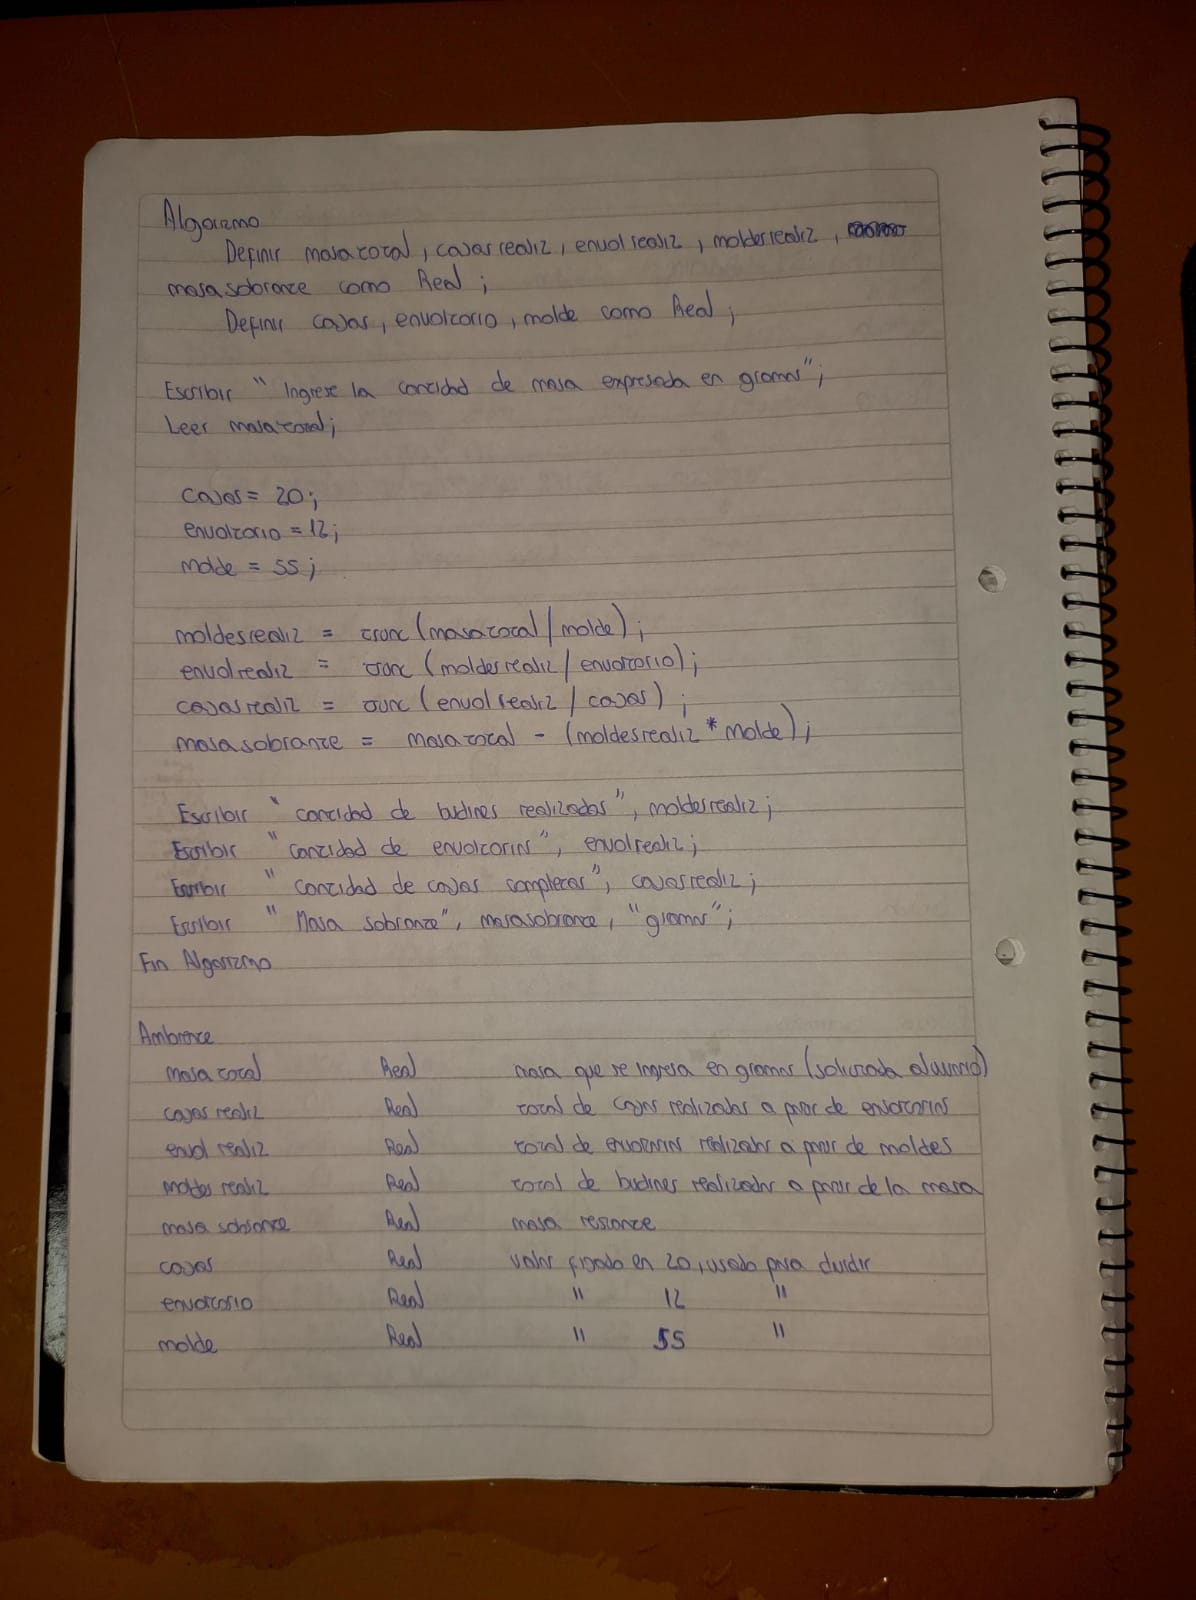 Algoritmo
Definir masatotal, cajasrealiz, envolrealiz, moldesrealiz,
masasobrante como Real;
Definir cajas, envoltorio, molde como Real;
Escribir "Ingrese la cantidad de masa expresada en gramos";
Leer masatotal;
cajas = 20;
envoltorio = 12;
molde = 55;
moldesrealiz = trunc (masatotal / molde);
envolrealiz = trunc (moldesrealiz / envoltorio);
cajasrealiz = trunc (envolrealiz / cajas);
masasobrante = masatotal - (moldesrealiz * molde);
Escribir "cantidad de budines realizados", moldesrealiz;
Escribir "cantidad de envoltorios", envolrealiz;
Escribir "cantidad de cajas completas", cajasrealiz;
Escribir "Masa sobrante", masasobrante, "gramos";
Fin Algoritmo
Ambiente
masa total Real masa que se ingresa en gramos (solicitada al usuario)
cajas realiz Real total de cajas realizadas a partir de envoltorios
envol realiz Real total de envoltorios realizados a partir de moldes
moldes realiz Real total de budines realizados a partir de la masa
masa sobrante Real masa restante
cajas Real valor fijado en 20, usado para dividir
envoltorio Real " 12 "
molde Real " 55 "